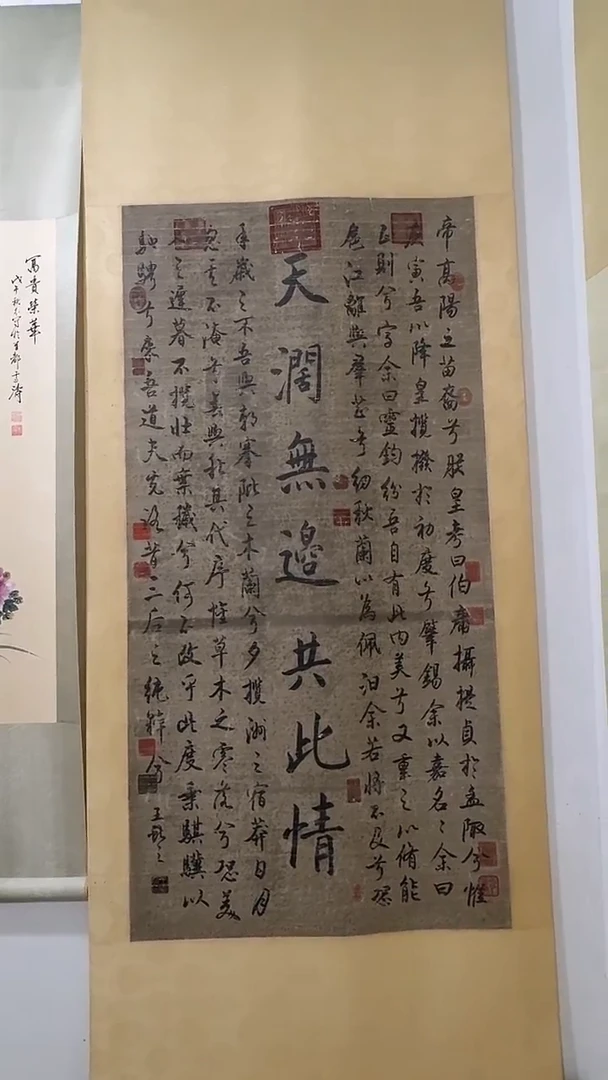 帝高陽之苗裔兮朕皇考曰伯庸攝提貞於孟陬兮惟
庚寅吾以降皇攬揆於初度兮肇錫余以嘉名〻余曰
正則兮字余曰靈鈞紛吾自有此内美兮又重之以脩能
扈江離與群芷兮紉秋蘭以為佩汩余若將不及兮恐
天濶無邊共此情
年歲之不吾與朝搴阰之木蘭兮夕攬洲之宿莽日月
忽其不淹兮春與秋其代序惟草木之零落兮恐美
人之遲暮不撫壯而棄穢兮何不改乎此度乘騏驥以
馳騁兮來吾道夫先路昔三后之純粹兮
富貴榮華
戊午秋